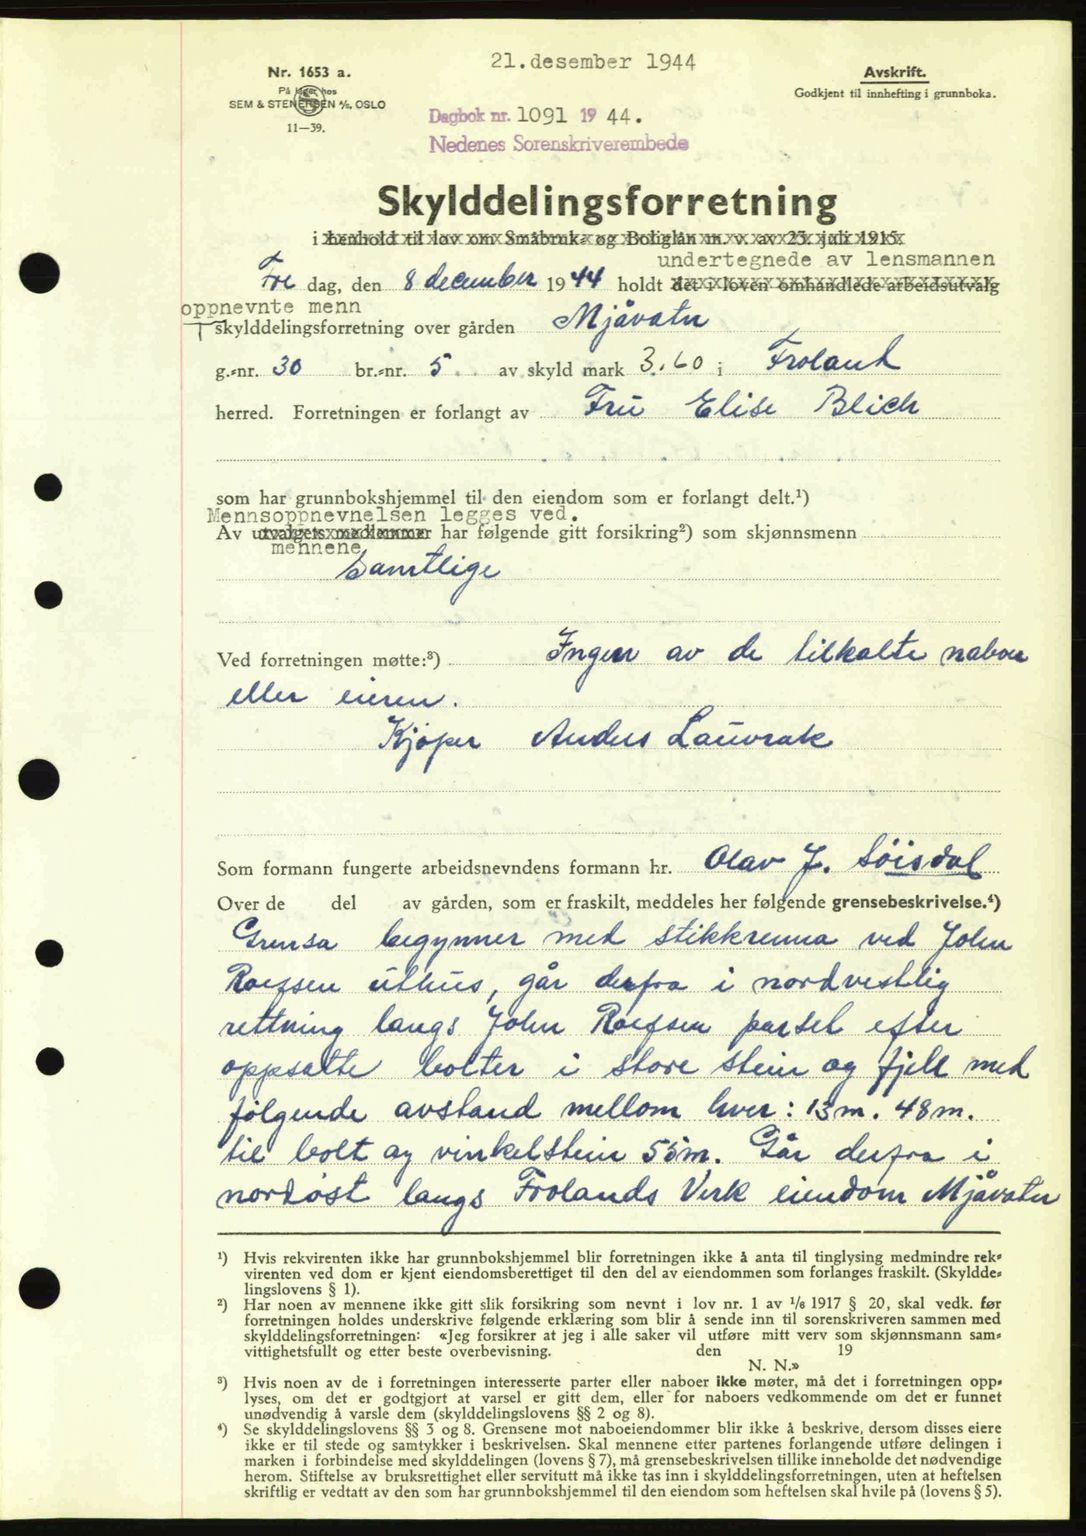 21.desember 1944
Nr. 1653 a.
På lager hos
SEM & STENERSEN A/S, OSLO
11—39.
Avskrift.
Godkjent til innhefting i grunnboka.
Dagbok nr. 1091 19 44.
Nedenes Sorenskriverembede
Skylddelingsforretning
i henhold til lov om Småbruk- og Boliglån m. v. av 23. juli 1915
undertegnede av lensmannen
Fre dag, den 8 december 1944 holdt det i loven omhandlede arbeidsutvalg
oppnevnte menn
skylddelingsforretning over gården Mjåvatn
g.-nr. 30 br.-nr. 5 av skyld mark 3.60 i Froland
herred. Forretningen er forlangt av Fru Elise Blich
som har grunnbokshjemmel til den eiendom som er forlangt delt.¹)
Mennsoppnevnelsen legges ved.
Av utvalgets medlemmer har følgende gitt forsikring²) som skjønnsmenn
mennene
Samtlige
Ved forretningen møtte:³) Ingen av de tilkalte naboer
eller eieren.
Kjøper Anders Lauvrak
Som formann fungerte arbeidsnevndens formann hr. Olav J. Søisdal
Over de del av gården, som er fraskilt, meddeles her følgende grensebeskrivelse.⁴)
Grensa begynner med stikkrenna ved John
uthus, går derfra i nordvestlig
rettning langs John parsel efter
oppsatte bolter i store stein og fjell med
følgende avstand mellom hver: 13m. 48m.
til bolt og vinkelstein 55m. Går derfra i
nordøst langs Frolands Verk eiendom Mjåvatn
¹) Hvis rekvirenten ikke har grunnbokshjemmel blir forretningen ikke å anta til tinglysing medmindre rek-
virenten ved dom er kjent eiendomsberettiget til den del av eiendommen som forlanges fraskilt. (Skyldde-
lingslovens § 1).
²) Har noen av mennene ikke gitt slik forsikring som nevnt i lov nr. 1 av 1/6 1917 § 20, skal vedk. før
forretningen holdes underskrive følgende erklæring som blir å sende inn til sorenskriveren sammen med
skylddelingsforretningen: «Jeg forsikrer at jeg i alle saker vil utføre mitt verv som skjønnsmann sam-
vittighetsfullt og etter beste overbevisning. den 19
N. N.»
³) Hvis noen av de i forretningen interesserte parter eller naboer ikke møter, må det i forretningen opp-
lyses, om det er godtgjort at varsel er gitt dem, eller for naboers vedkommende om det er funnet
unødvendig å varsle dem (skylddelingslovens §§ 2 og 8).
⁴) Se skylddelingslovens §§ 3 og 8. Grensene mot naboeiendommer blir ikke å beskrive, dersom disses eiere
ikke er til stede og samtykker i beskrivelsen. Skal mennene etter partenes forlangende utføre delingen i
marken i forbindelse med skylddelingen (lovens § 7), må grensebeskrivelsen tillike inneholde det nødvendige
herom. Stiftelse av bruksrettighet eller servitutt må ikke tas inn i skylddelingsforretningen, uten at heftelsen
skriftlig er vedtatt av den som har grunnbokshjemmel til den eiendom som heftelsen skal hvile på (lovens § 5).